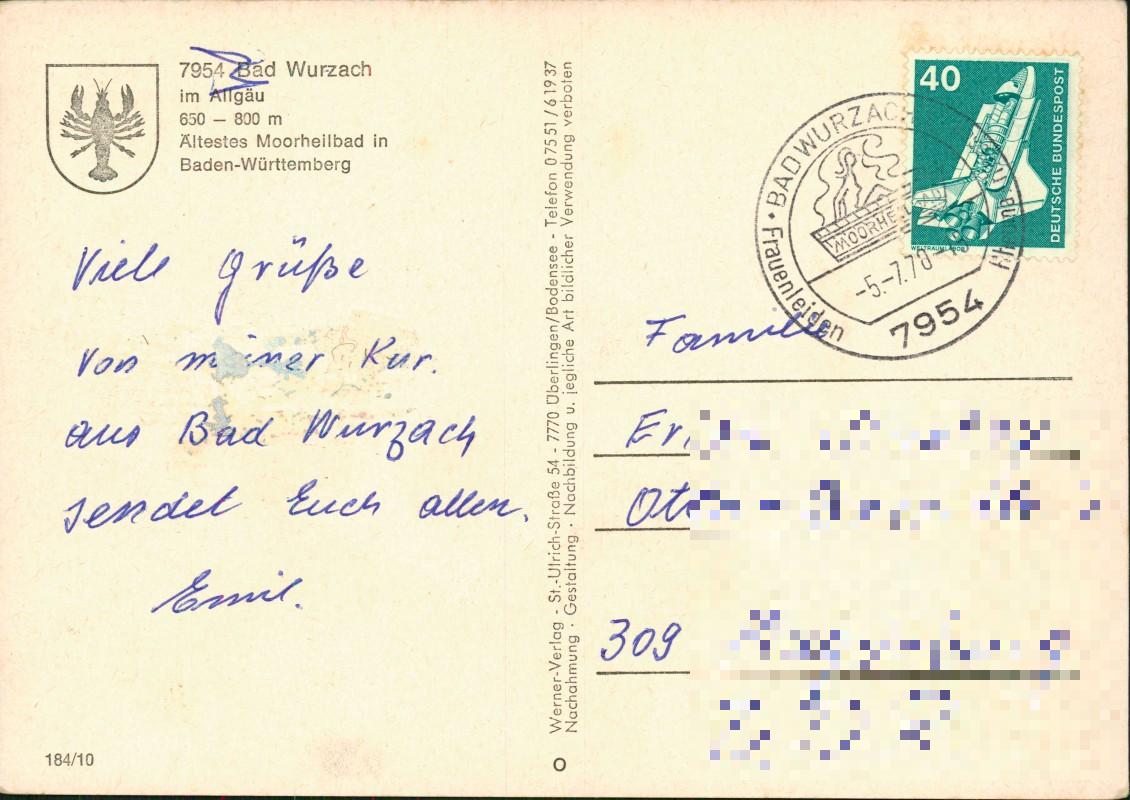 7954 Bad Wurzach
im Allgäu
650 — 800 m
Ältestes Moorheilbad in
Baden-Württemberg
Viele Grüße
von meiner Kur.
aus Bad Wurzach
sendet Euch allen.
Emil.
184/10
Werner-Verlag - St.-Ulrich-Straße 54 - 7770 Überlingen/Bodensee - Telefon 07551/61937
Nachahmung · Gestaltung · Nachbildung u. jegliche Art bildlicher Verwendung verboten
40
DEUTSCHE BUNDESPOST
WELTRAUMLABOR
BAD WURZACH
Frauenleiden
-5.-7.78
7954
Familie
309